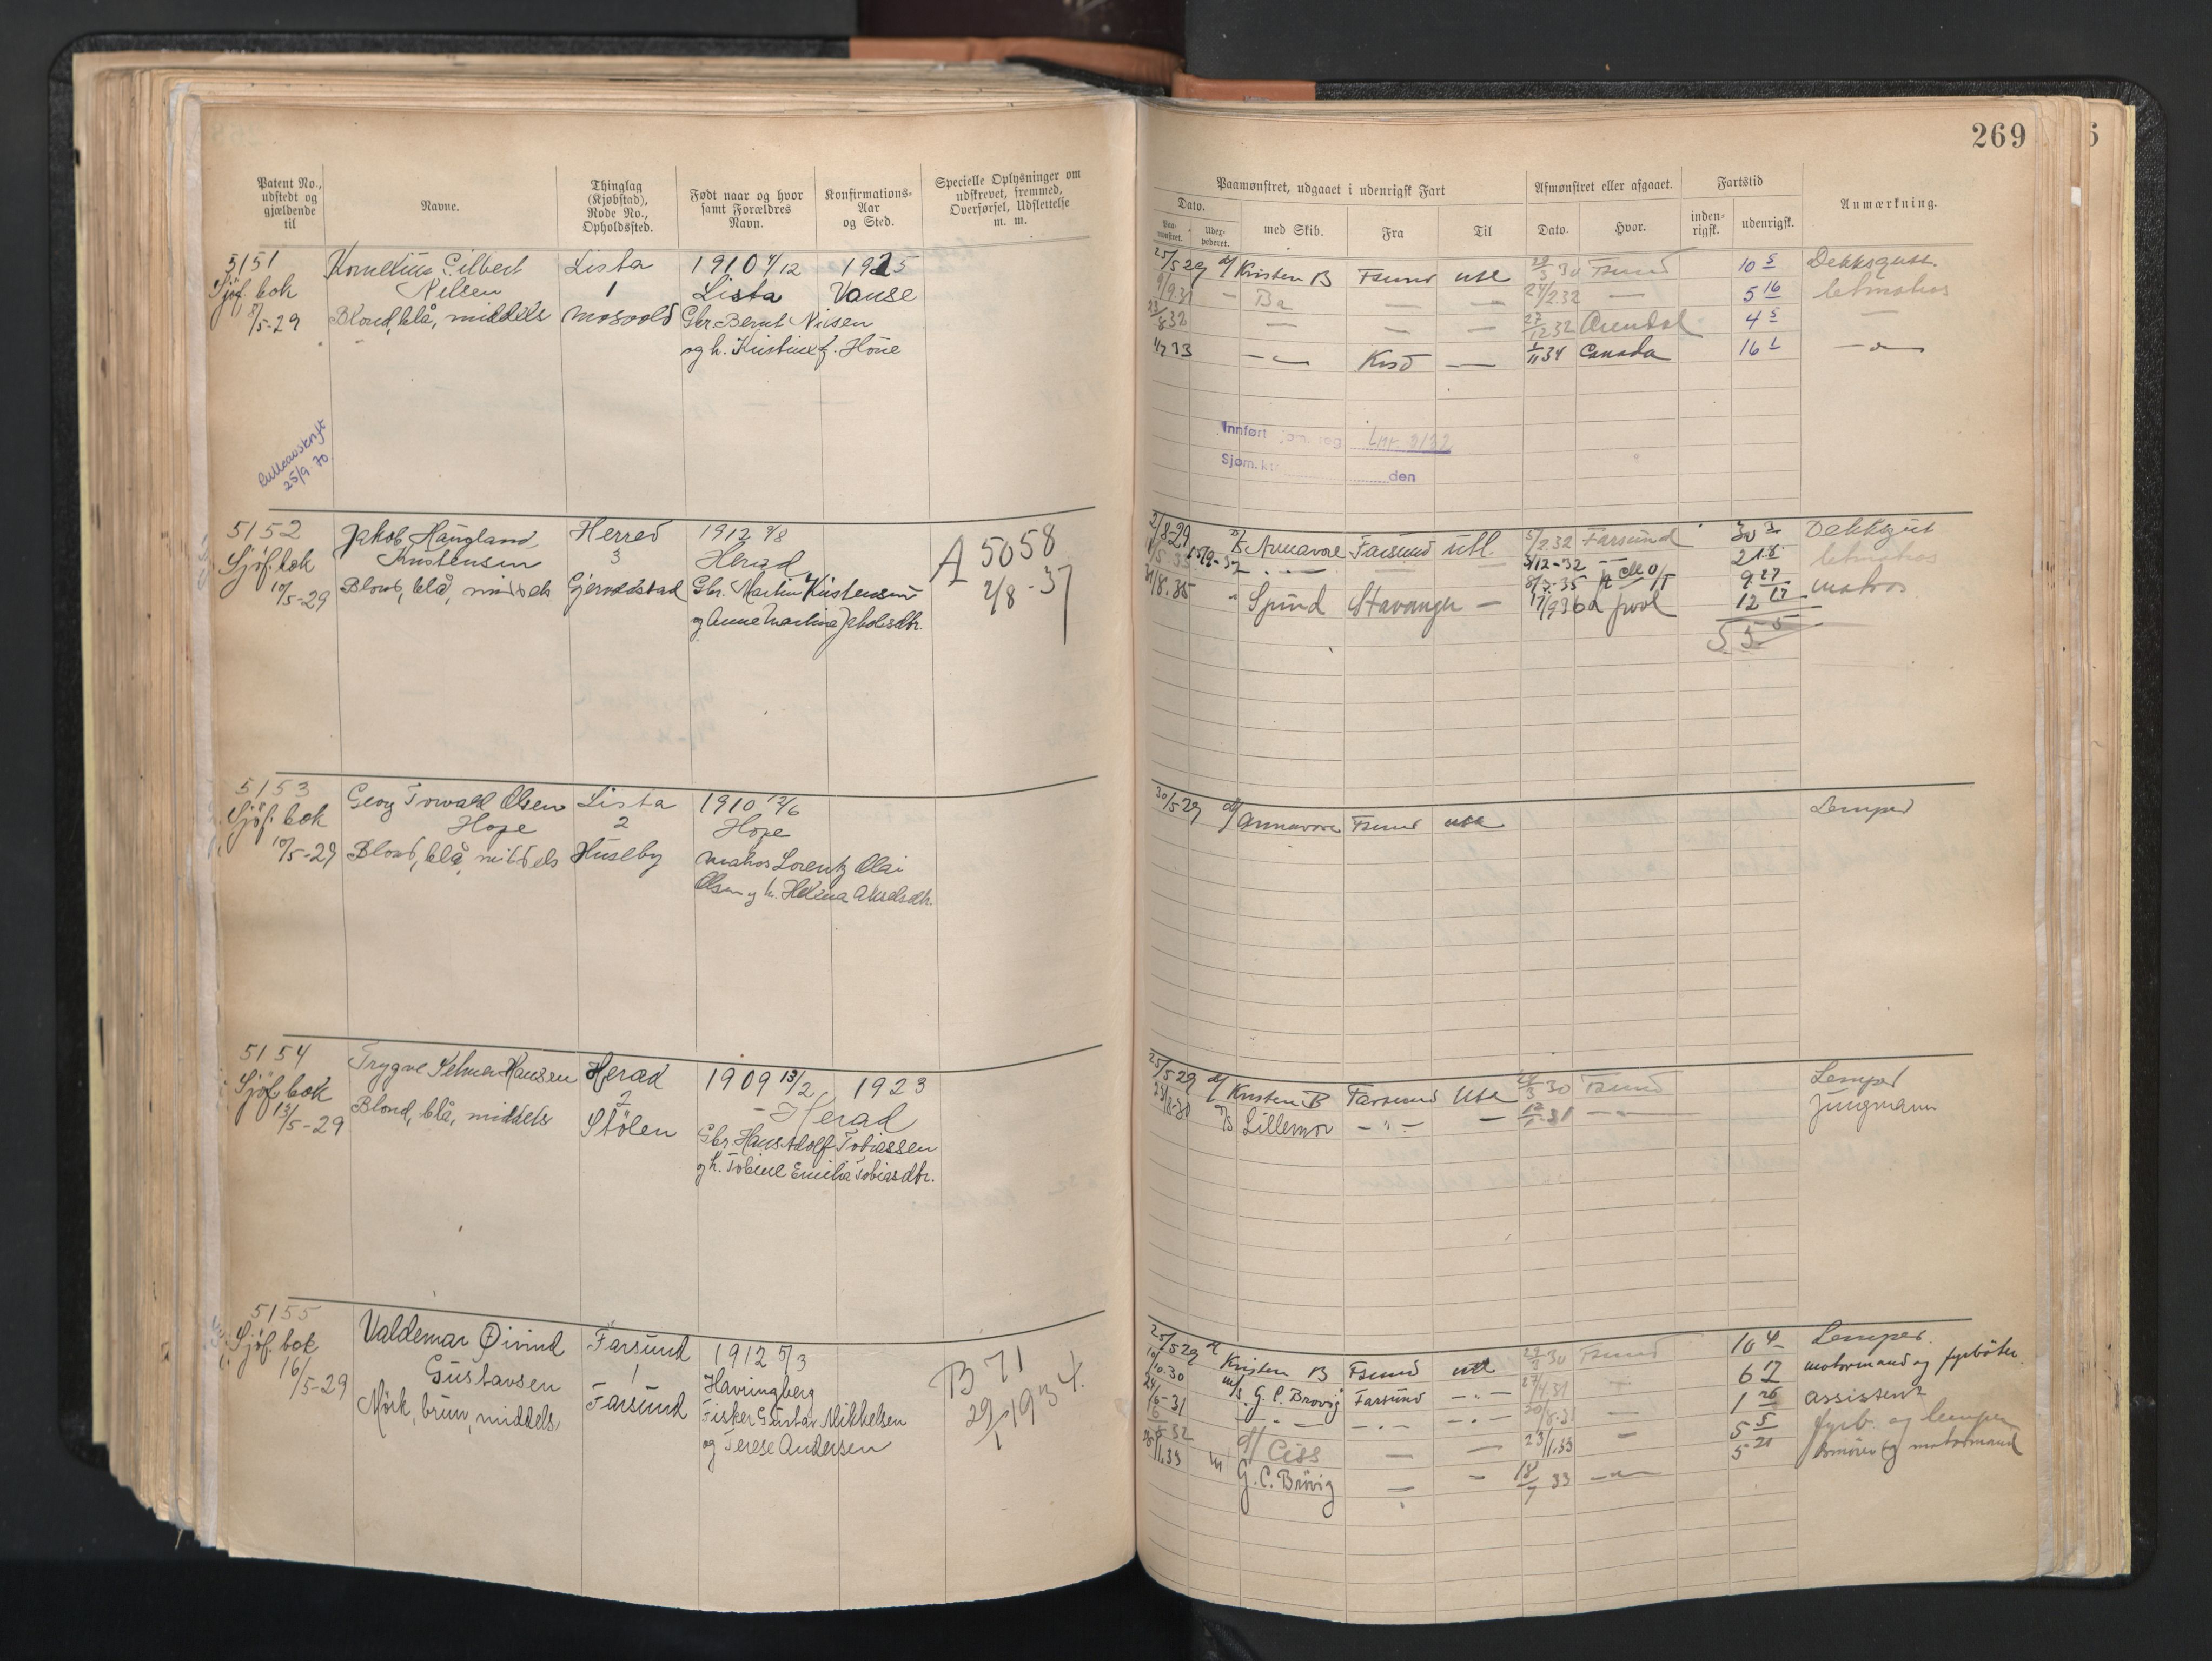 269
Patent No., udstedt og gjældende til
Navne.
Thinglag (Kjøbstad), Rode No., Opholdssted.
Født naar og hvor samt Forældres Navn.
Konfirmations-Aar og Sted.
Specielle Oplysninger om udskrevet, fremmed, Overførsel, Udslettelse m. m.
Paamønstret, udgaaet i udenrigsk Fart
Afmønstret eller afgaaet.
Fartstid
Anmærkning.
Dato.
Paa-mønstret.
med Skib.
Fra
Til
Dato.
Hvor.
inden-rigsk.
udenrigsk.
5151
Sjøf. bok
8/5-29
Kornelius Gilbert
Nilsen
Blond, blå, middels
Lista
1
Mosvold
1910 4/12
Lista
Gbr. Bernt Nilsen
og h. Kristine f.
1925
Vanse
Rulleavskrift
25/9 70
25/5 29 d/ Kristen B Fsund utl 30 Fsund 10 5 Dekksgutt
Ba — — 2.32 — 5 16 letmatros
23/8 32 — — — 27/12 32 Arendal 4 5 —
Krsd — 34 Canada 16 1
Innført
Lnr.
Sjøm.k
den
5152
Sjøf. bok
10/5-29
Jakob Haugland
Kristensen
Blond, blå, middels
Herred
3
Gjervoldstad
1912 9/8
Herad
Gbr. Martin Kristensen
og Anne Martine Jakobsdtr.
A 5058
2/8-37
2/8 29 Annavore Farsund utl. 5/2 32 Farsund 30 3 Dekkgut
3/12-32 21 8 letmatros
8/7-35 9 27 matros
31/8.35 " Spind Stavanger — 17/9 36 12 17
55 5
5153
Sjøf. bok
10/5-29
Georg Torvald Olsen
Hope
Blond, blå, middels
Lista
2
Huseby
1910 12/6
Hope
Matros Lorentz Olai
Olsen og h. Helena Akselsdtr.
30/5 29 d/ Annavore Fsund utl Lemper
5154
Sjøf. bok
13/5-29
Trygve Selmer Hansen
Blond, blå, middels
Herad
2
Stölen
1909 13/2
1923
Herad
Gbr. Hans Adolf Tobiassen
og h. Tobine Emilie Tobiasdtr.
25/5 29 d/ Kristen B Farsund Utl 30 Fsund Lemper
Lillemor — " — — 31 — Jungmann
5155
Sjøf. bok
16/5-29
Valdemar Øivind
Gustavsen
Mörk, brun, middels
Farsund
1
Farsund
1912 5/3
Havringberg
Fisker Gustav Mikkelsen
og Terese Andersen
B 71
29/1 1934.
25/5 29 d/ Kristen B Fsund utl 30 Fsund 10 4 Lemper.
10/10.30 m/s. G. C. Brovig Farsund — " — 27/4.31 6 17 motormand og fyrbøter.
24/6-31 — " — — " — — " — 30/8-31 — 1 26 assistent
32 d/ Ciss — — 23/1.33 — 5 5 fyrb. og lemper
1.33 G. C. Brövig — — 18/7 33 — 5 21 Smører og motormand